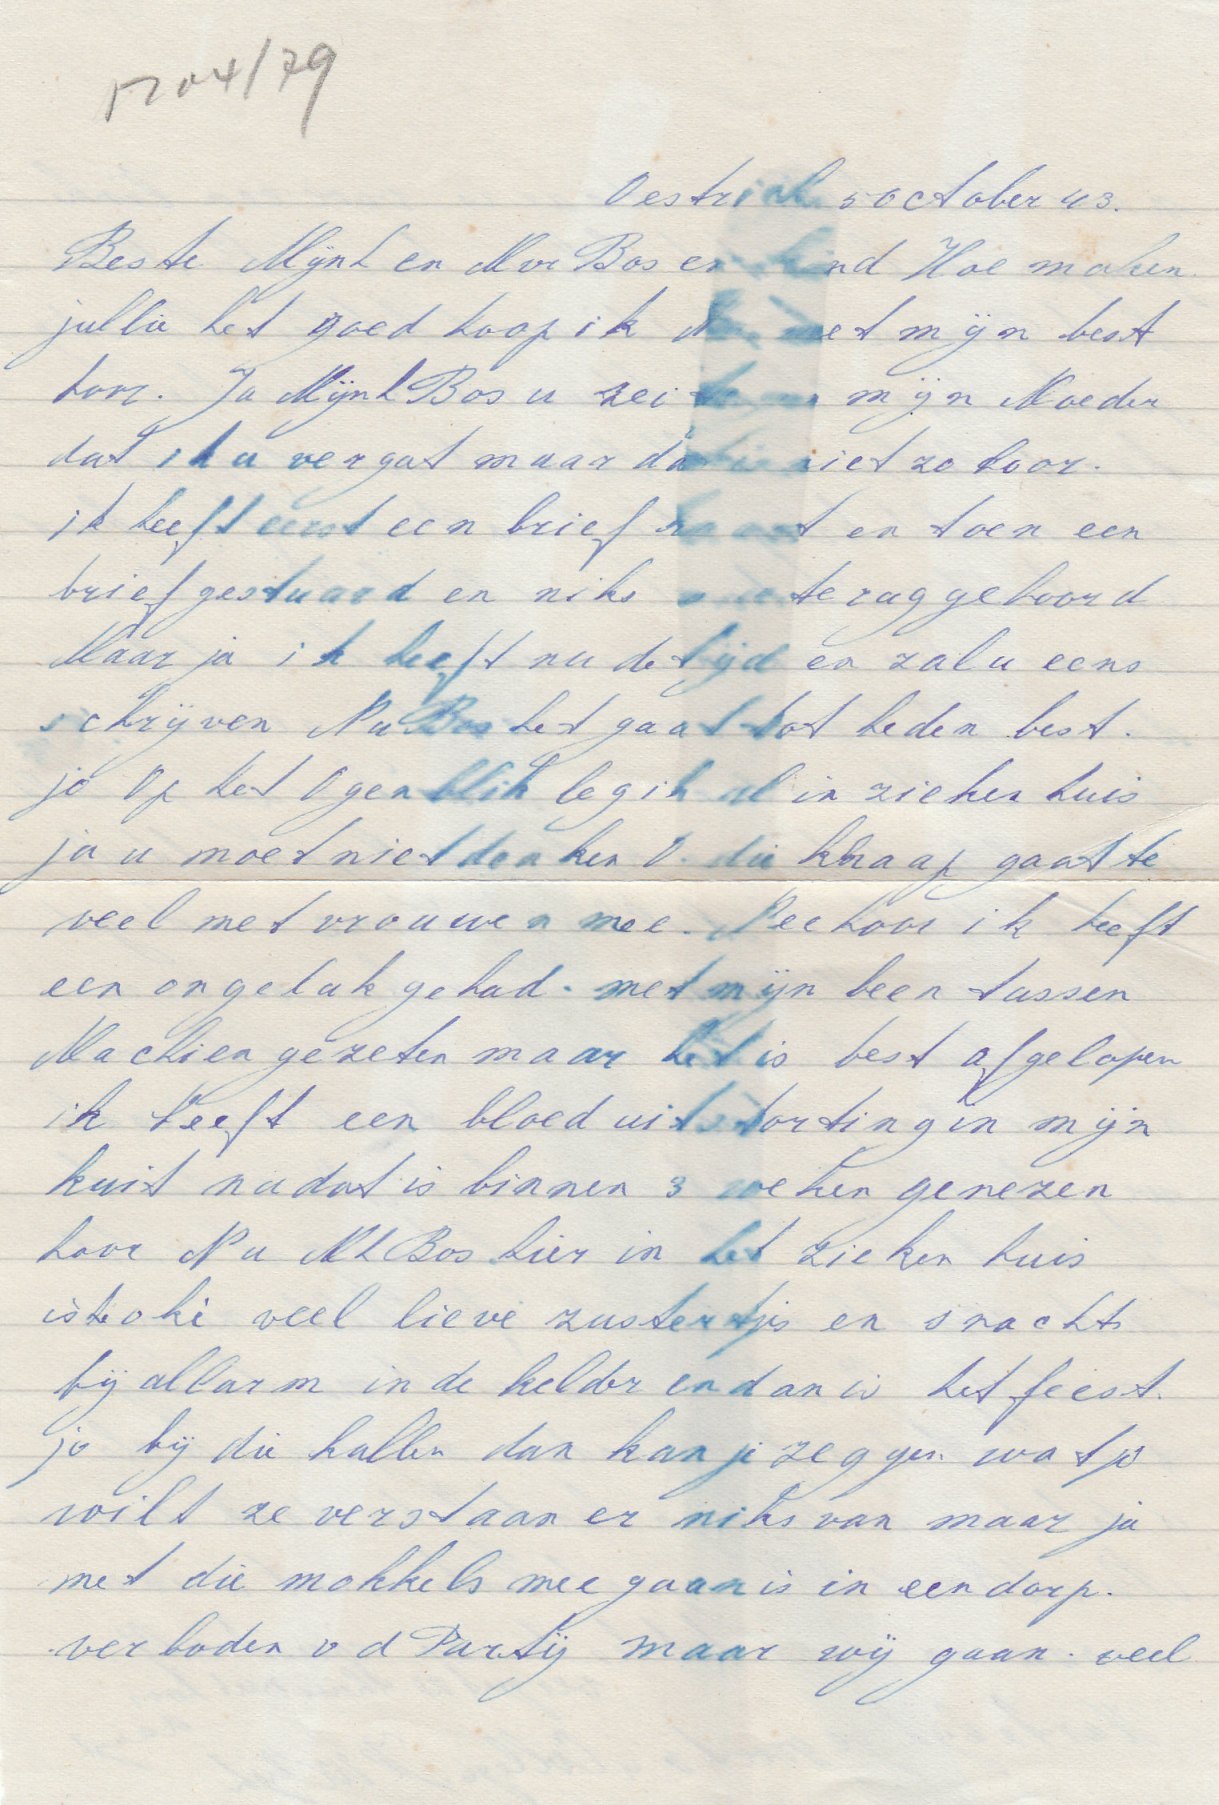 1704/79
Oestrich 5 october 43.
Beste Mijnh en Mvr Bos en kind Hoe maken
jullie het goed hoop ik met mijn best
hoor. Ja Mijnh Bos u zei mijn Moeder
dat ik u vergat maar dat is niet zo hoor.
ik heeft eerst een brief kaart en toen een
brief gestuurd en niks terug gehoord
Maar ja ik heeft nu de tijd en zal u eens
schrijven Nu Bos het gaat tot heden best.
jo Op het Ogenblik leg ik al in zieken huis
ja u moet niet denken O. die knaap gaat te
veel met vrouwen mee. Nee hoor ik heeft
een ongeluk gehad. met mijn been tussen
Machien gezeten maar het is best afgelopen
ik heeft een bloed uitstorting in mijn
kuit nu dat is binnen 3 weken genezen
hoor Nu Mh Bos hier in het zieken huis
is te oké veel lieve zustertjes en snachts
bij allarm in de kelder en dan is het feest.
jo bij die hallen dan kan je zeggen wat je
wilt ze verstaan er niks van maar ja
met die mokkels mee gaan is in een dorp.
verboden v d Partij maar wij gaan. veel